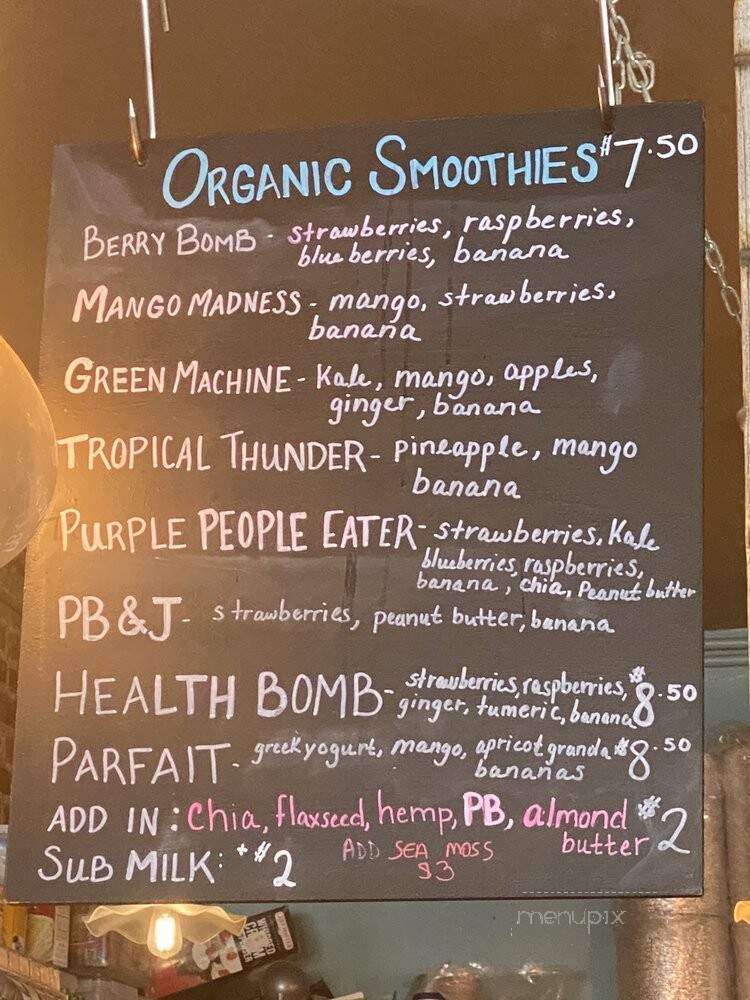 ORGANIC SMOOTHIES $7.50
BERRY BOMB - strawberries, raspberries,
blueberries, banana
MANGO MADNESS - mango, strawberries,
banana
GREEN MACHINE - Kale, mango, apples,
ginger, banana
TROPICAL THUNDER - pineapple, mango
banana
PURPLE PEOPLE EATER - strawberries, Kale
blueberries, raspberries,
banana, chia, Peanut butter
PB & J - strawberries, peanut butter, banana
HEALTH BOMB - strawberries, raspberries, $8.50
ginger, tumeric, banana
PARFAIT - greek yogurt, mango, apricot granola $8.50
bananas
ADD IN: Chia, flaxseed, hemp, PB, almond $2
butter
SUB MILK: +$2 ADD SEA MOSS
$3
menupix